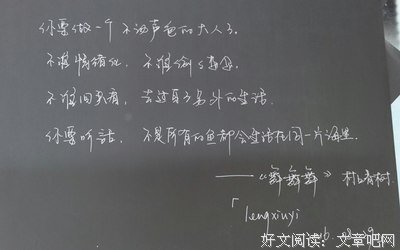 你要做一个不动声色的大人了。
不准情绪化，不准偷偷想念，
不准回头看，去过自己另外的生活。
你要听话，不是所有的鱼都会生活在同一片海里。
——《舞舞舞》村上春树
「lengxinyi
好文阅读：文章吧网